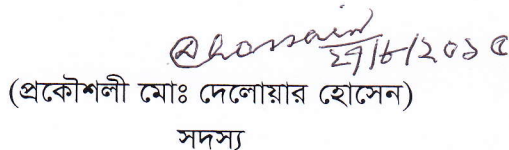 Dhossain
২৭/৮/২০১৫
(প্রকৌশলী মোঃ দেলোয়ার হোসেন)
সদস্য